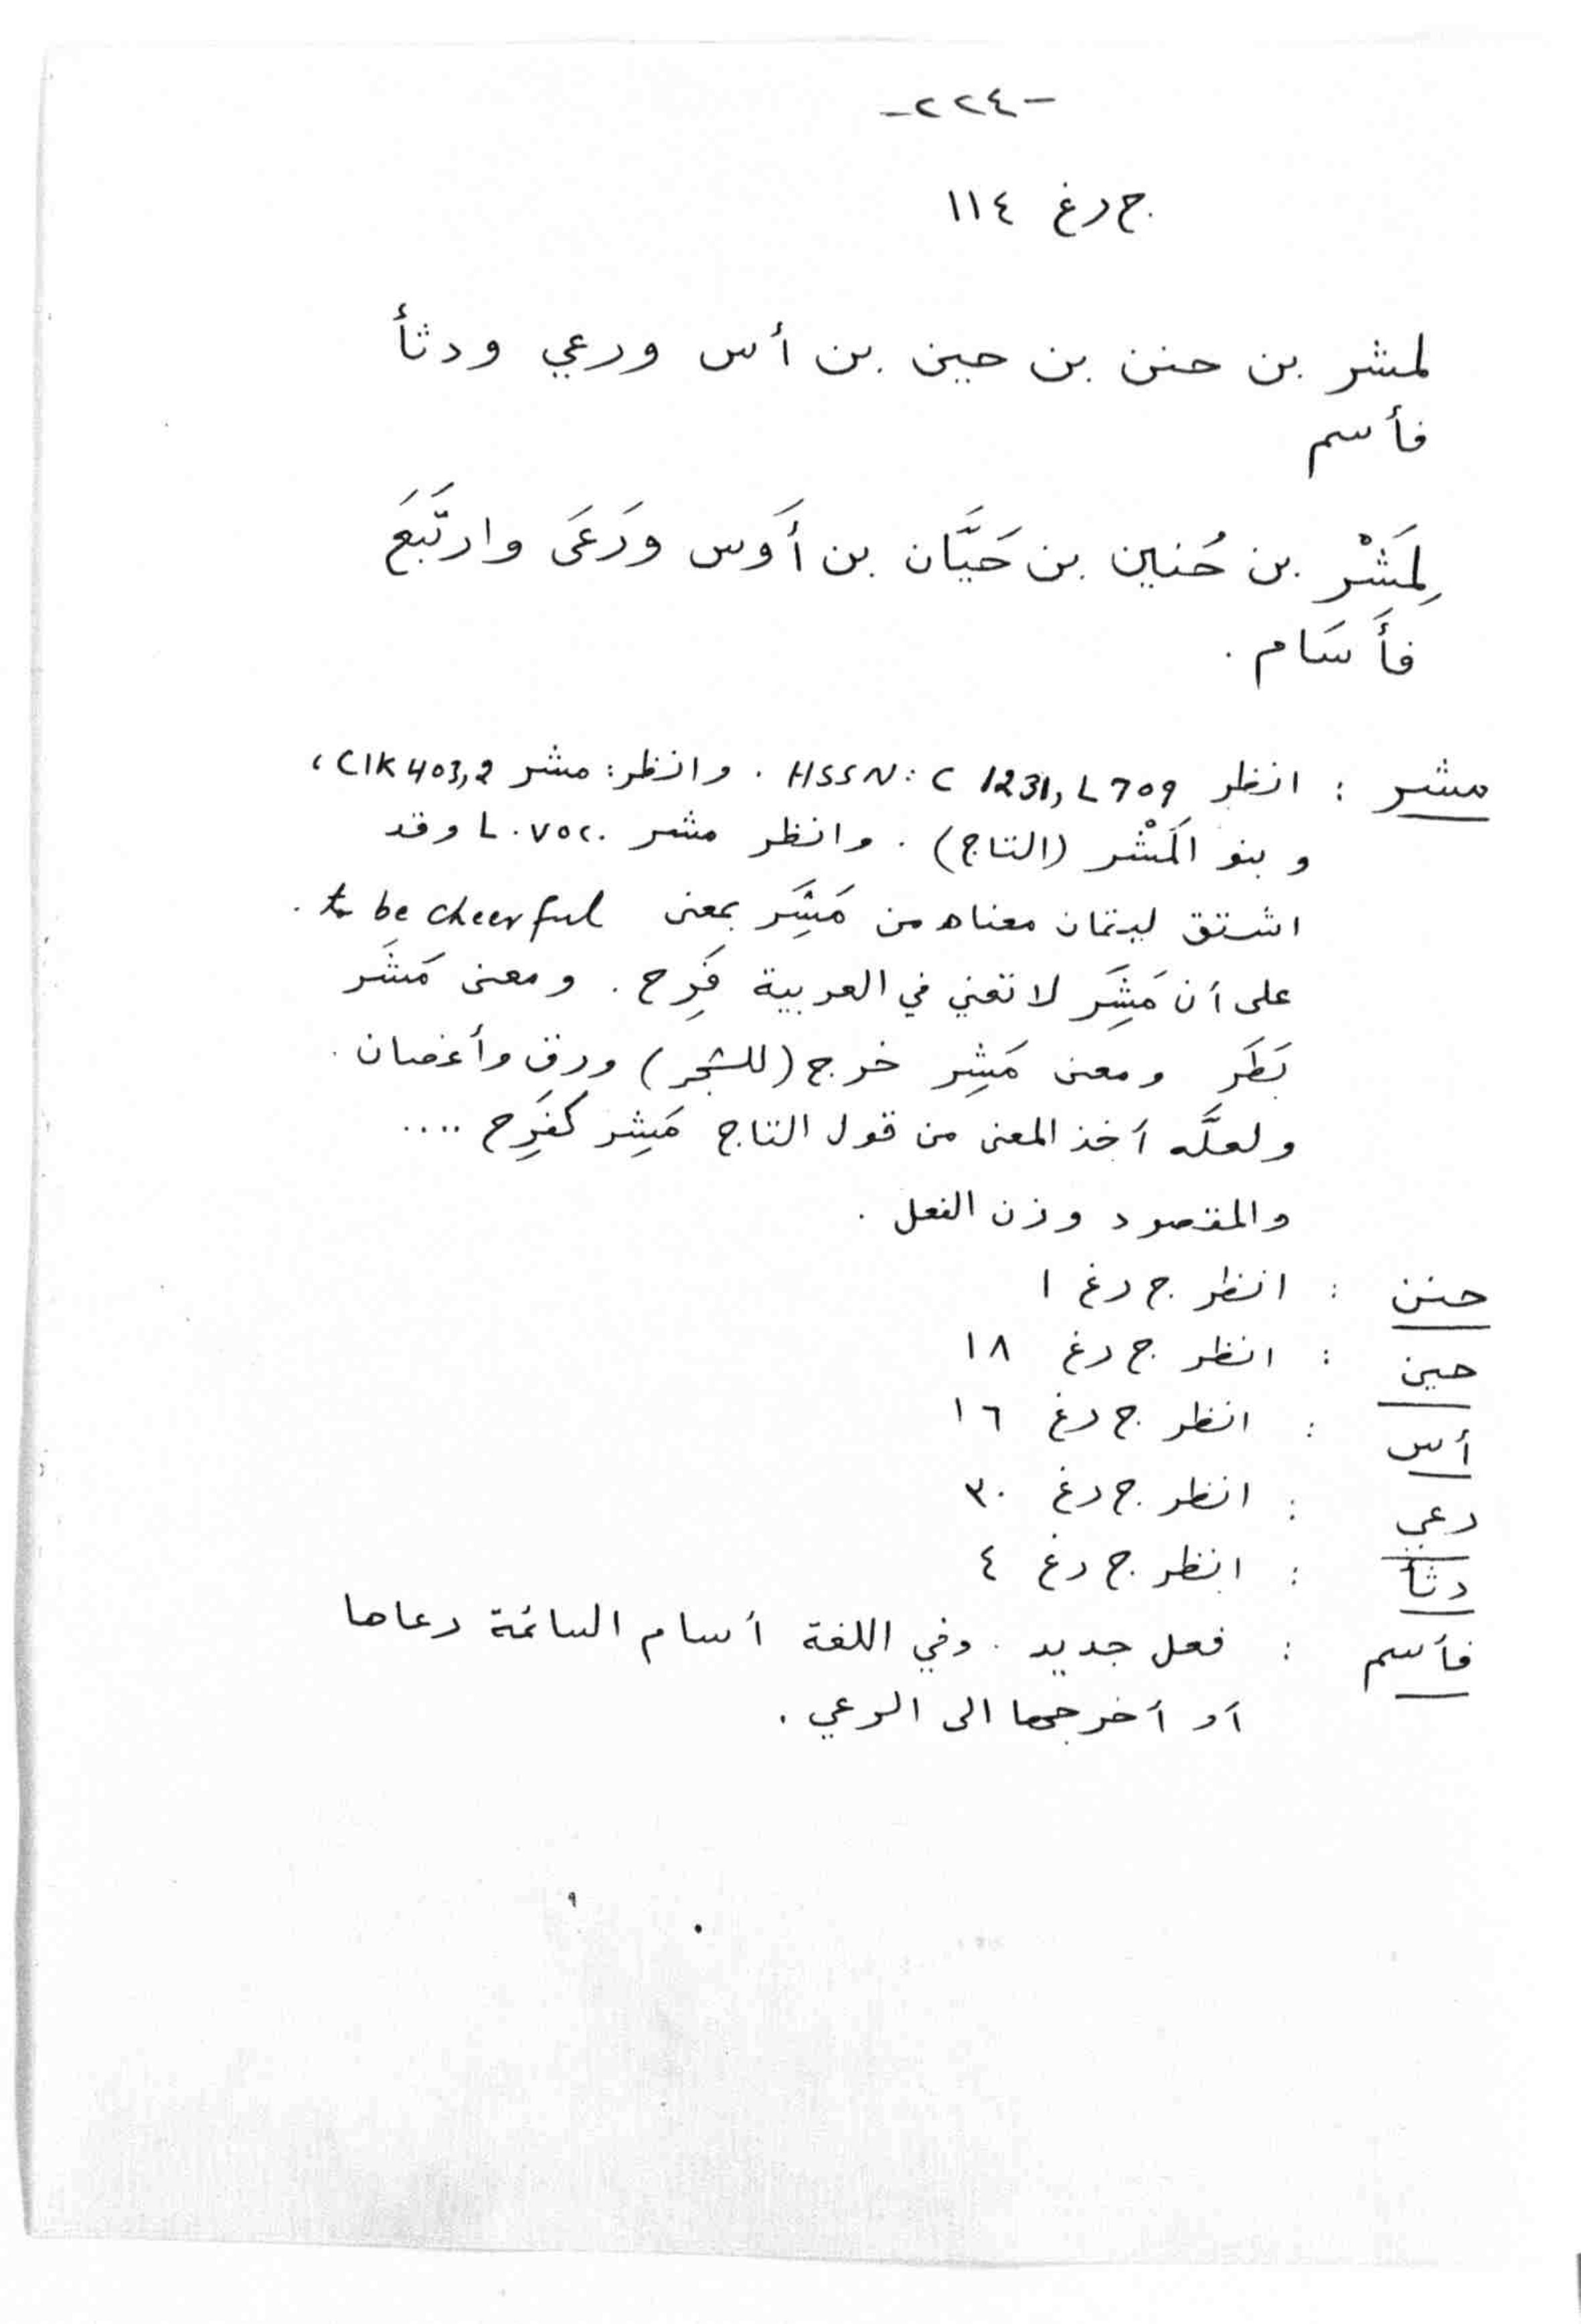 -٢٢٤-
ج رغ ١١٤
لمشر بن حنن بن حين بن أس ورعي ودثأ
فأسم
لِمَشْر بن حُنين بن حَيَّان بن أَوس ورَعَى وارتَّبَعَ
فأَسَام .
مشر : انظر HSSN: C 1231, L 709 . وانظر: مشر CIK 403,2 ،
وبنو المَشْر (التاج) . وانظر مشر L. voc. وقد
اشتق ليتمان معناه من مَشِرَ بمعنى to be cheerful .
على أن مَشِرَ لا تعني في العربية فَرِح . ومعنى مَشَر
بَطَر ومعنى مَشِر خرج (للشجر) ورق وأغصان .
ولعلَّه أخذ المعنى من قول التاج مَشِر كفَرِح ....
والمقصود وزن الفعل .
حنن : انظر ج رغ ١
حين : انظر ج رغ ١٨
أس : انظر ج رغ ١٦
رعي : انظر ج رغ ٣٠
دثأ : انظر ج رغ ٤
فأسم : فعل جديد . وفي اللغة أسام السائمة رعاها
أو أخرجها الى الرعي .